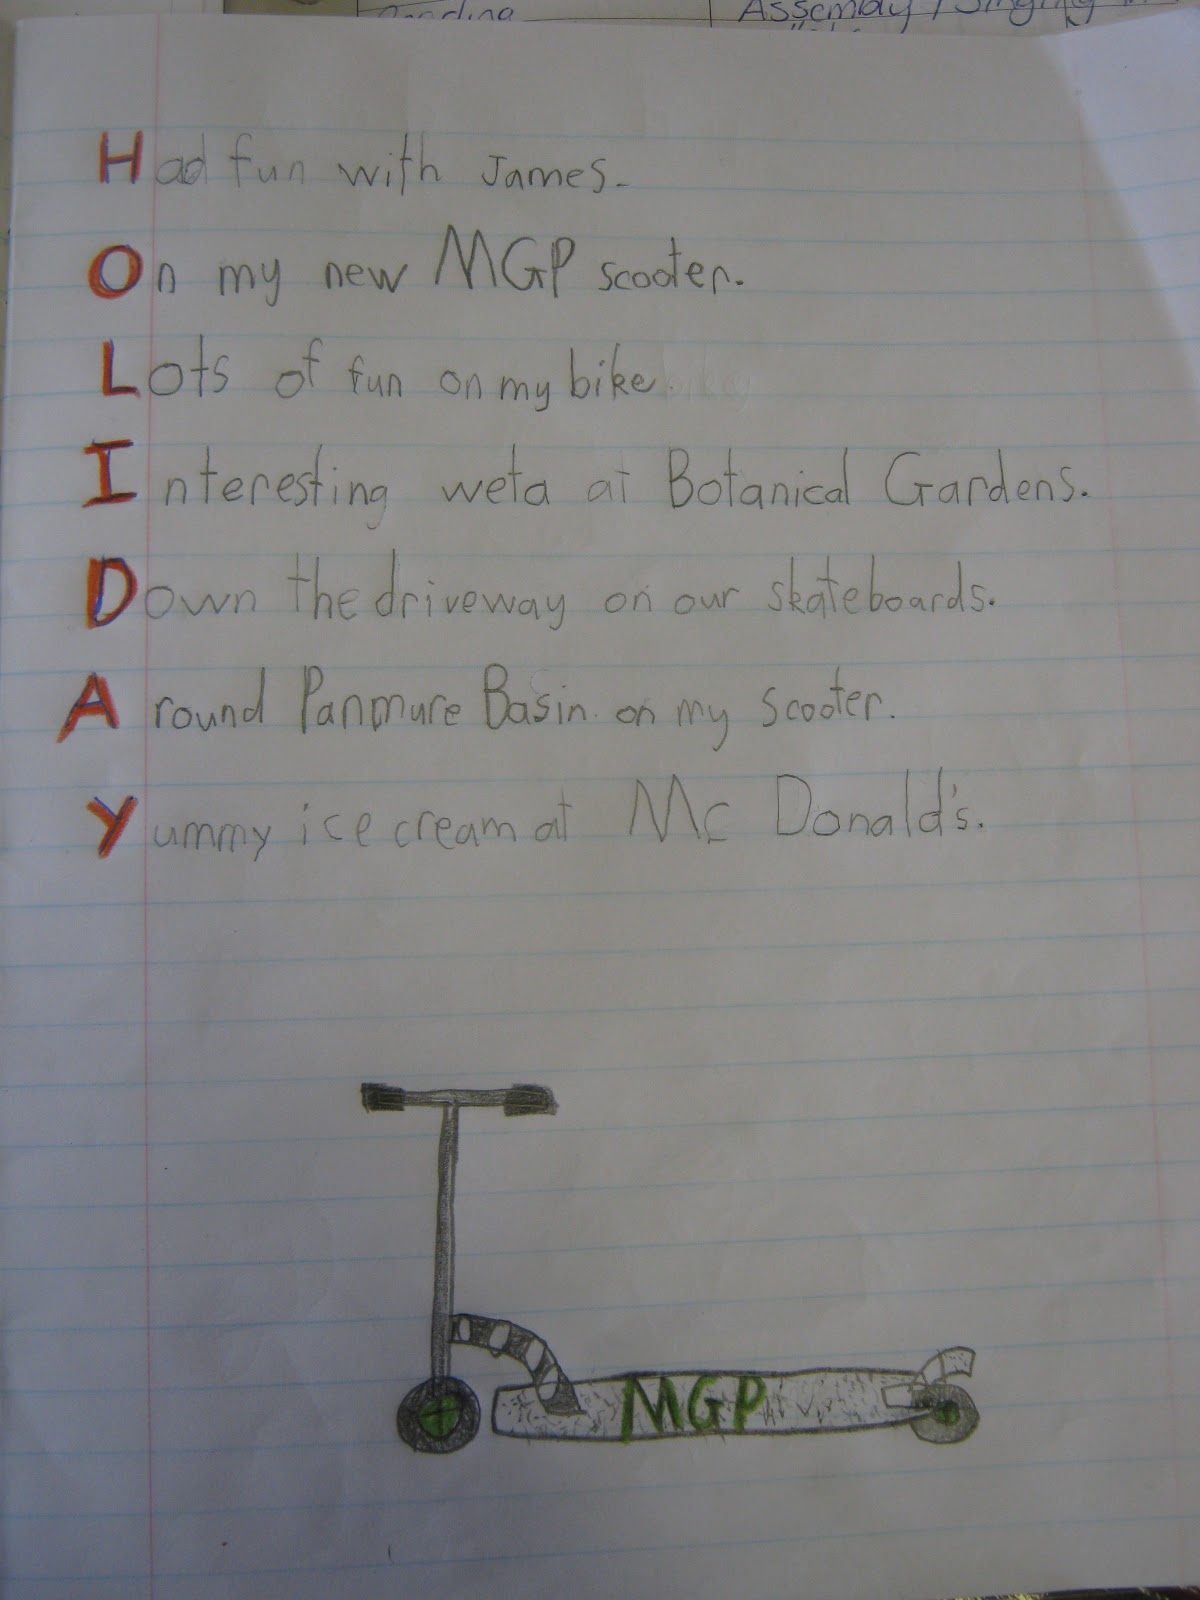 Assembly / Singing
Had fun with James.
On my new MGP scooter.
Lots of fun on my bike.
Interesting weta at Botanical Gardens.
Down the driveway on our skateboards.
Around Panmure Basin on my scooter.
Yummy ice cream at Mc Donald's.
MGP